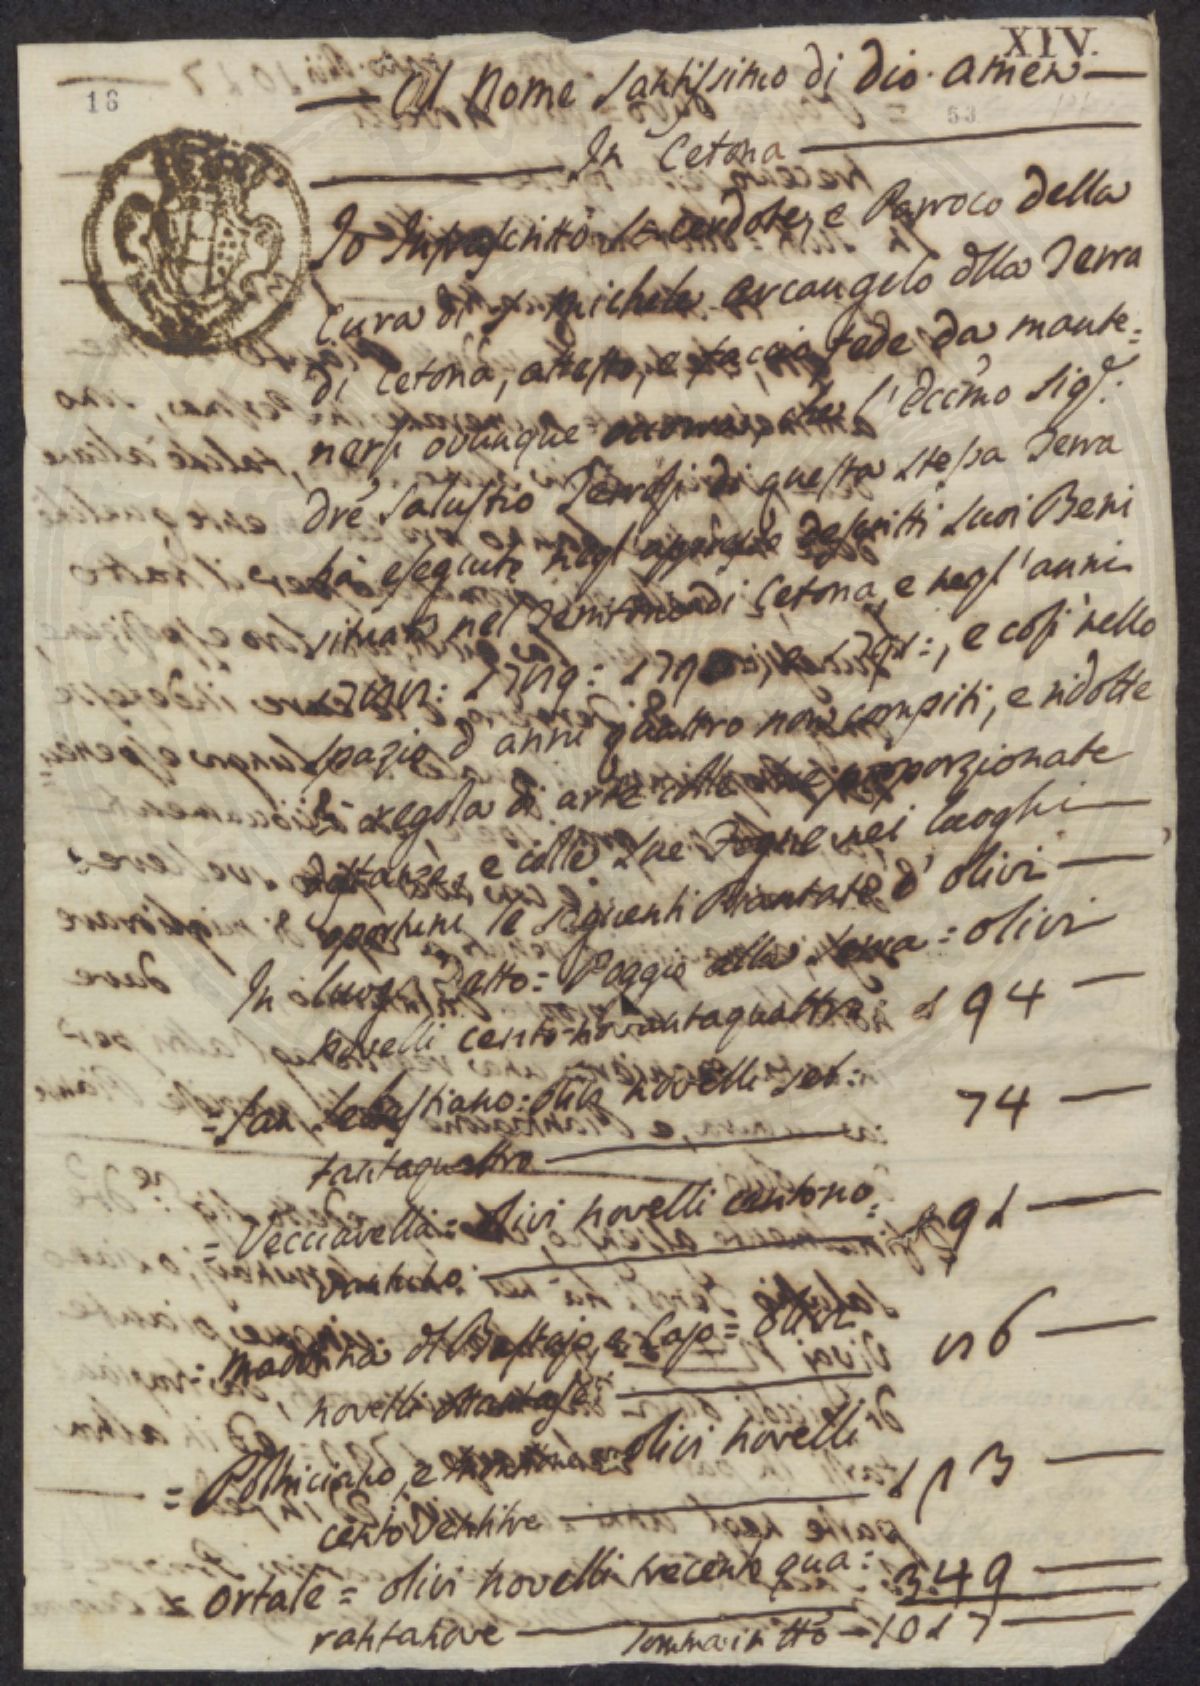 XIV.
16
Al Nome Santissimo di Dio. Amen
53
In Cetona
Io Infrascritto Sacerdote, e Parroco della
Cura di S. Michele Arcangelo dlla Terra
di Cetona, attesto, e faccio fede da mante=
nersi ovunque occorra, che l'Eccmo Sigr.
Dre Salustio Terrosj di questa stessa Terra
hà eseguite negl'appresso descritti suoi Beni
situati nel Territorio di Cetona, e negl'anni
1788: 1789: 1790, e 1791:, e così nello
spazio d'anni quattro non compiti, e ridotte
a regola di arte colle sue proporzionate
distanze, e colle sue Fogne nei luoghi
oportuni le seguenti Piantate d'olivi
In luogo Detto = Poggio alla Terra = olivi
novelli cento novantaquattro 194
= San Sebastiano: olivi novelli set:
74
tantaquattro
= Vecciavella = olivi novelli centono=
191
vantuno:
= Madonna di Bastajo, e Capo = olivi
86
novelli ottantasei
= Polniciano, e olivi novelli
123
cento Ventitre
= Ortale = olivi novelli trecento qua:
349
rantanove
Somma in tto 1017